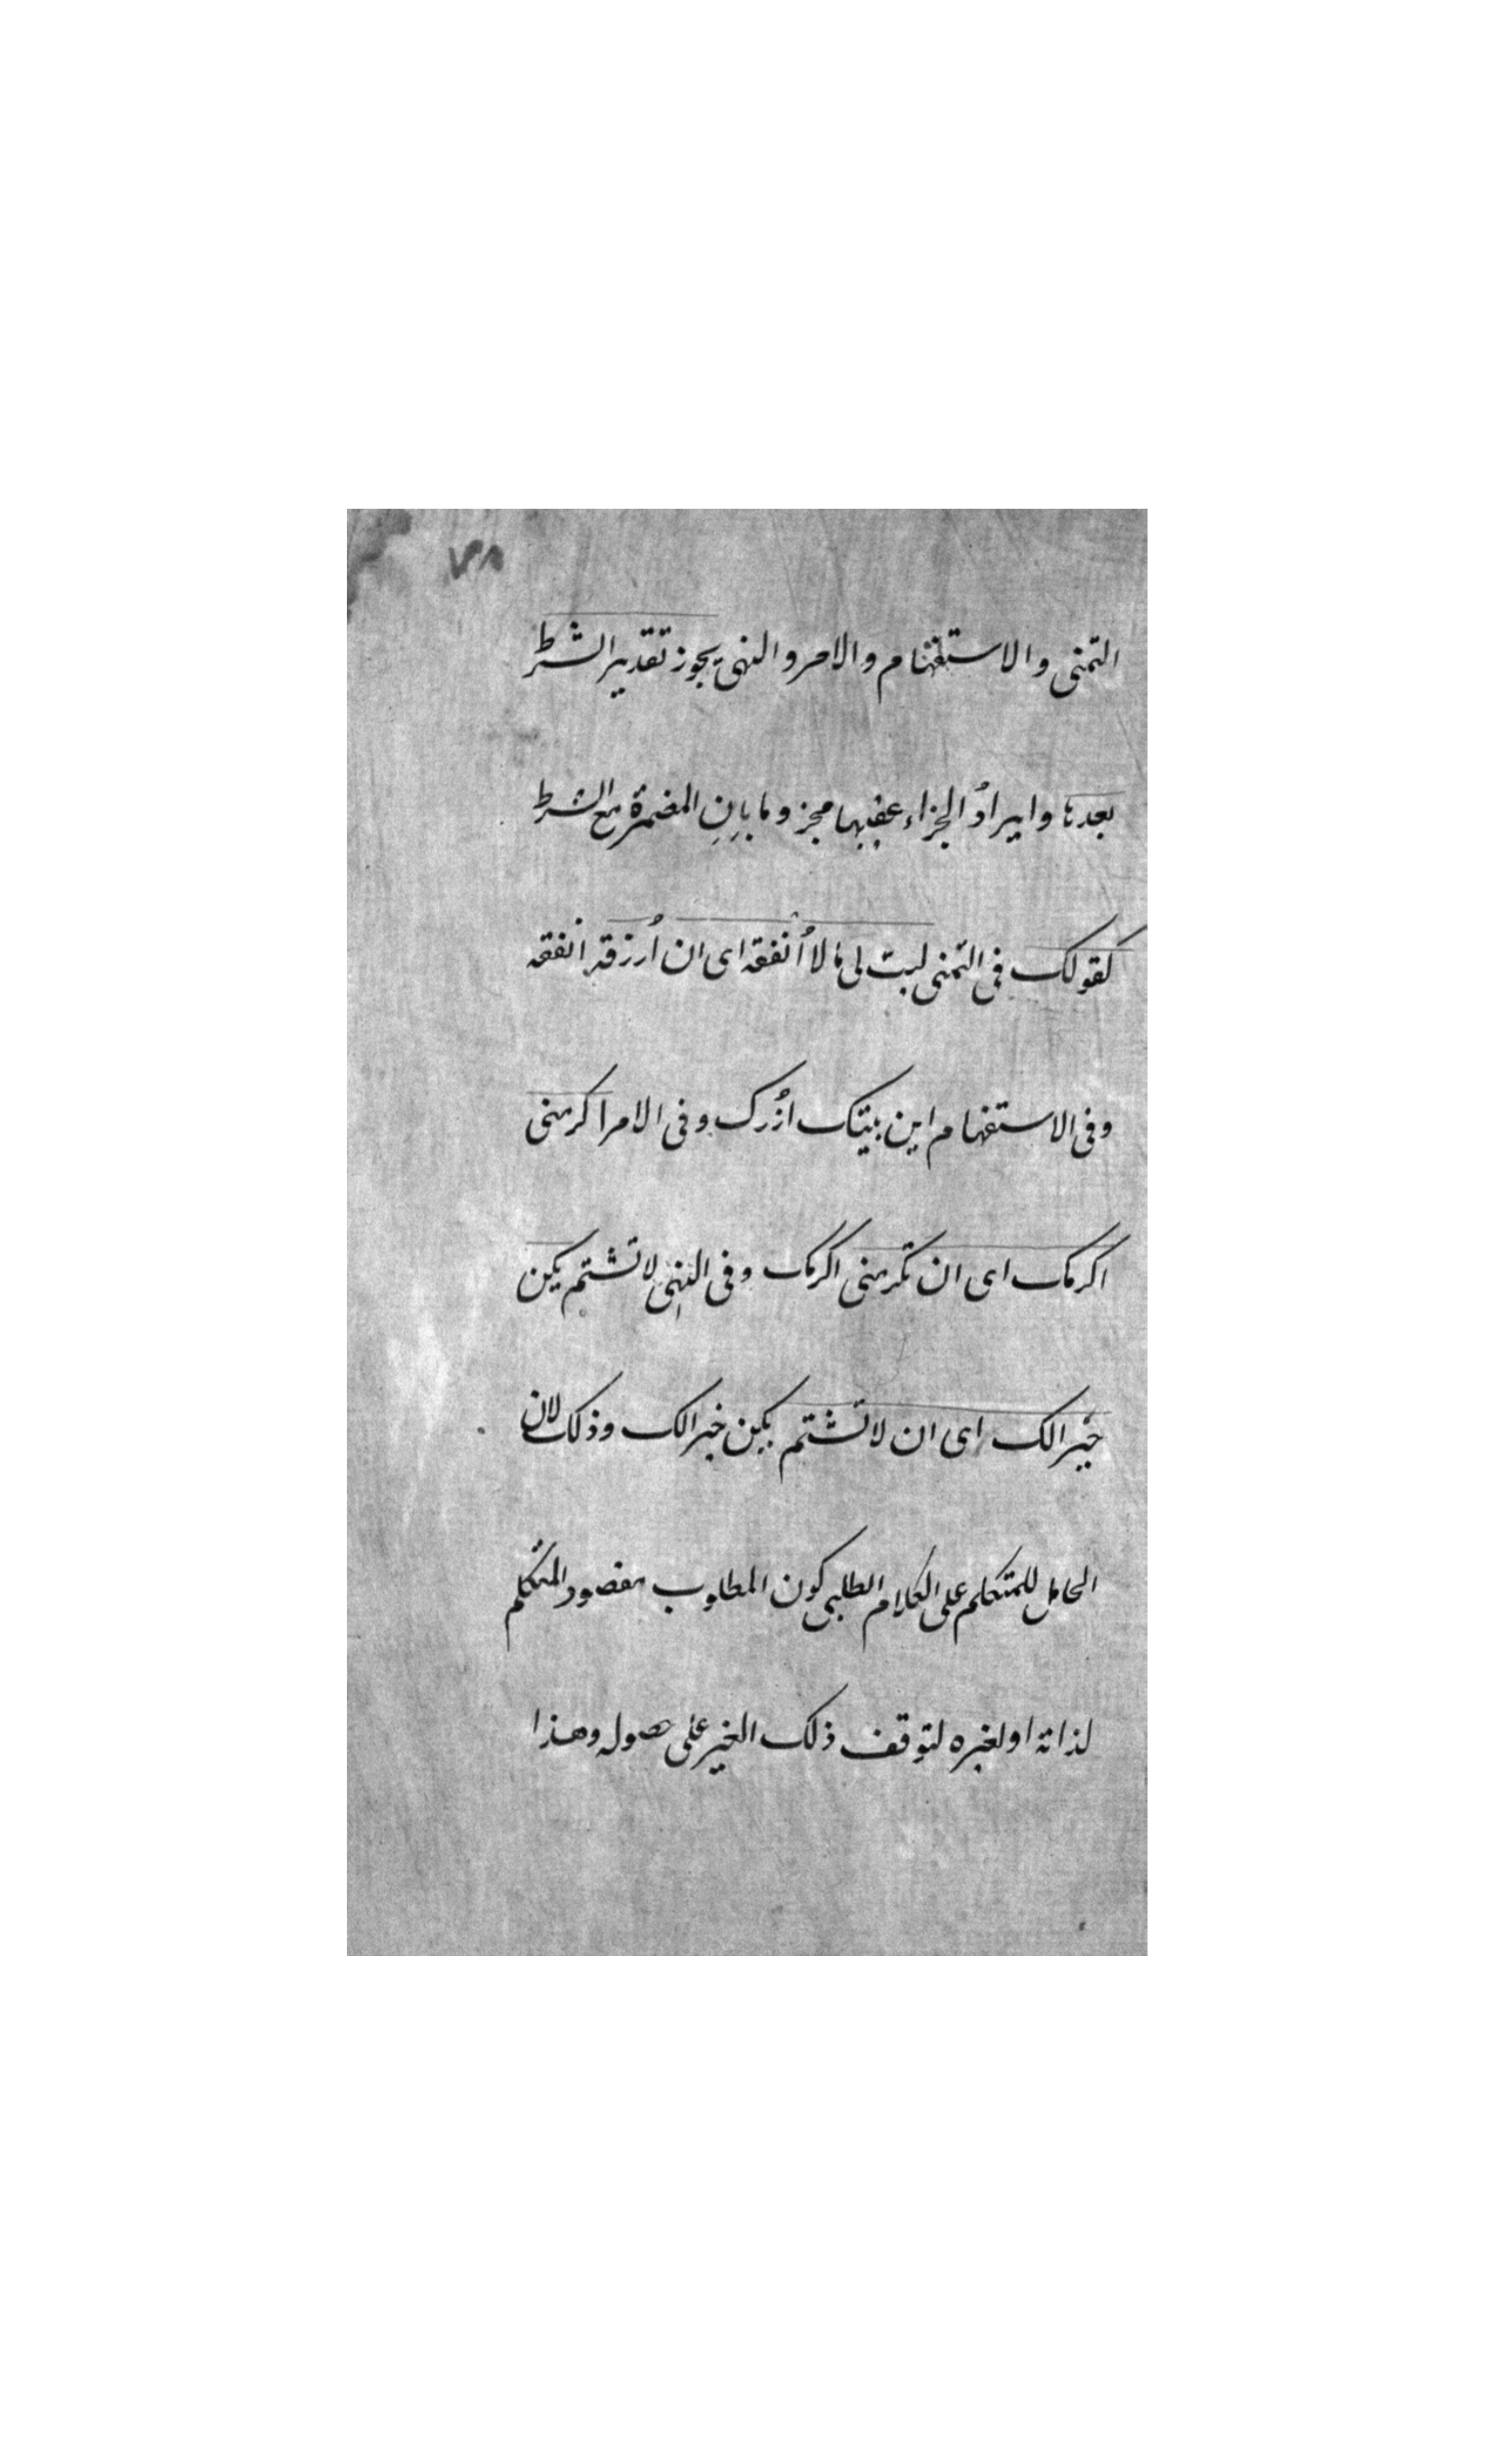 التمنى والاستفهام والامر والنهى يجوز تقدير الشرط
بعدها وايرادُ الجزاء عقيبها مجزوما بانِ المضمرة مع الشرط
كقولك فى التمنى ليت لى مالا اُنفقه اى ان اُرزقه انفقه
وفى الاستفهام اين بيتك ازُرك وفى الامر اكرمنى
اكرمك اى ان تكرمنى اكرمك وفى النهى لا تشتم يكن
خيرا لك اى ان لا تشتم يكن خيرا لك وذلك لان
الحامل للمتكلم على الكلام الطلبى كون المطلوب مقصود المتكلم
لذاته او لغيره لتوقف ذلك الغير على حصوله وهذا